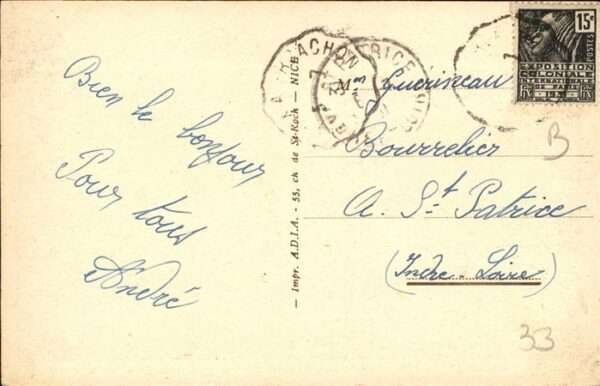 Bien le bonjour
Pour tous
André
Impr. A.D.I.A. - 55, ch de St-Roch - NICE
Guerineau
Bourrelier
A. St Patrice
(Indre-Loire)
ARCACHON
15c
POSTES
EXPOSITION
COLONIALE
INTERNATIONALE
DE PARIS
1931
RF
RF
B
33